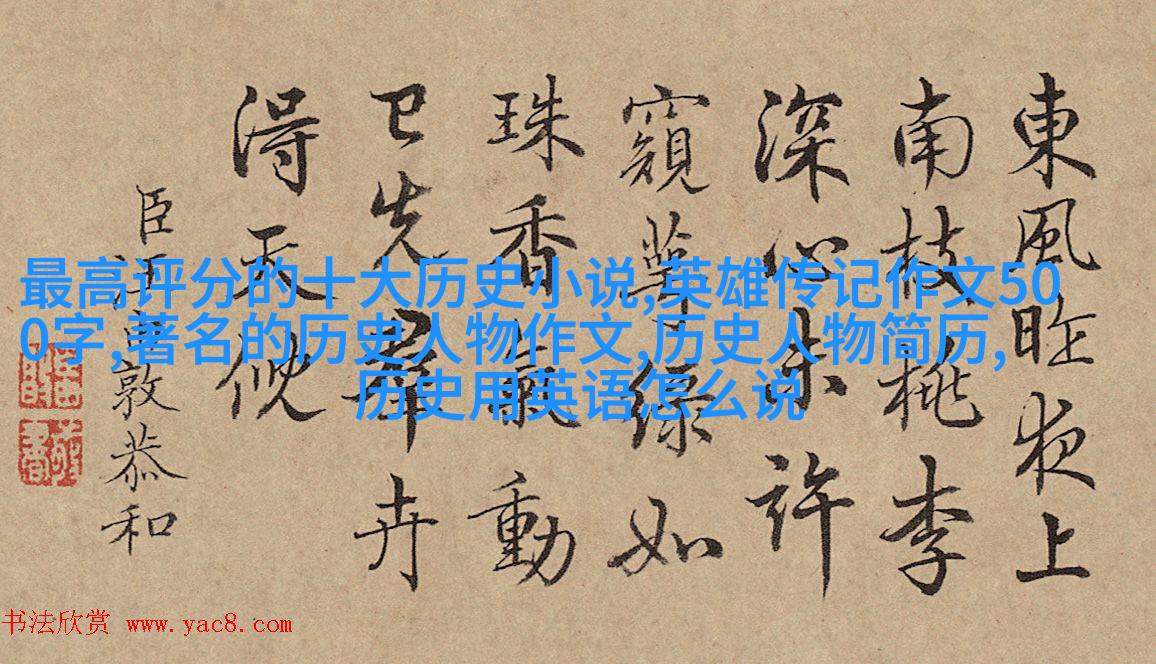 東風昨夜上
南枝桃李
深心未許
窺萼綠如
珠香動
已先群卉
得天
臣汪由敦恭和
最高评分的十大历史小说,英雄传记作文50
0字,著名的历史人物作文,历史人物简历,
历史用英语怎么说
书法欣赏 www.yac8.com